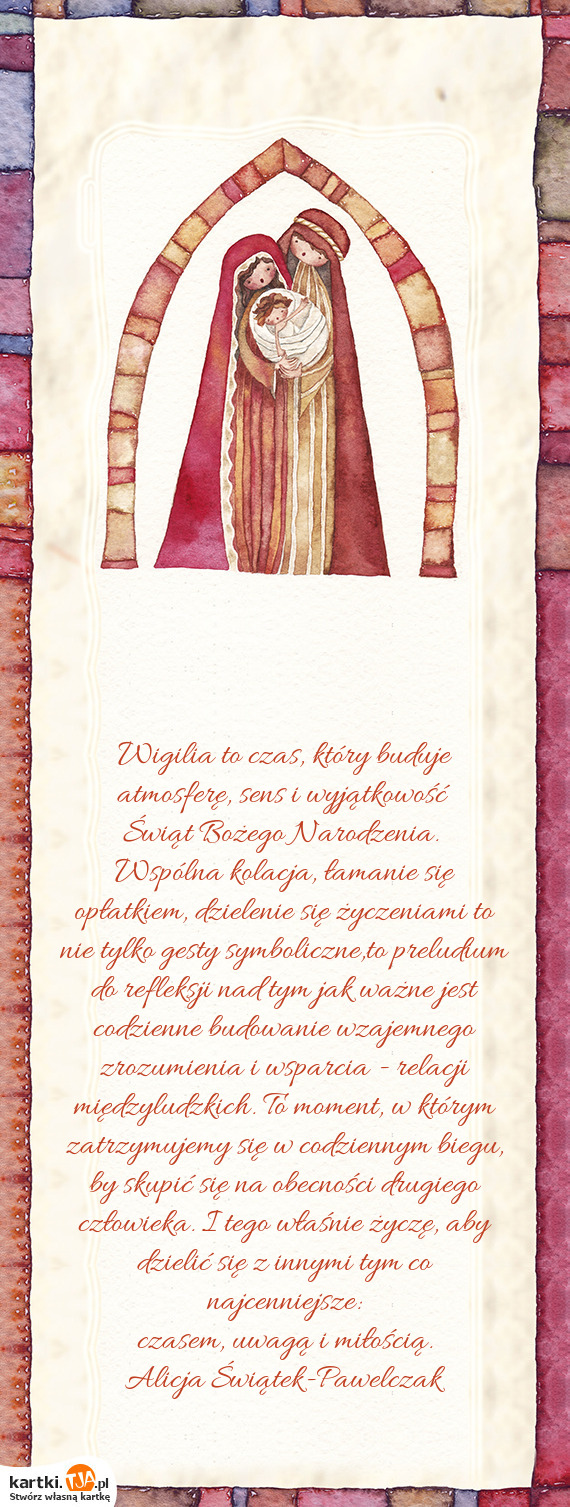 Wigilia to czas, który buduje
atmosferę, sens i wyjątkowość
Świąt Bożego Narodzenia.
Wspólna kolacja, łamanie się
opłatkiem, dzielenie się życzeniami to
nie tylko gesty symboliczne,to preludium
do refleksji nad tym jak ważne jest
codzienne budowanie wzajemnego
zrozumienia i wsparcia - relacji
międzyludzkich. To moment, w którym
zatrzymujemy się w codziennym biegu,
by skupić się na obecności drugiego
człowieka. I tego właśnie życzę, aby
dzielić się z innymi tym co
najcenniejsze:
czasem, uwagą i miłością.
Alicja Świątek-Pawelczak
kartki.TJA.pl
Stwórz własną kartkę